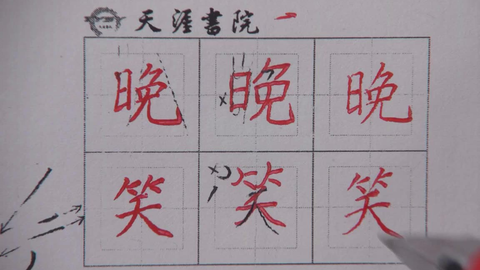 天涯書院
晚晚晚
笑笑笑